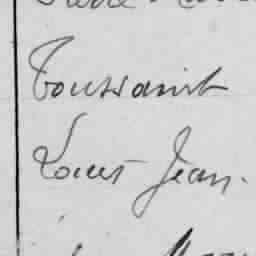 Toussaint
Louis Jean.